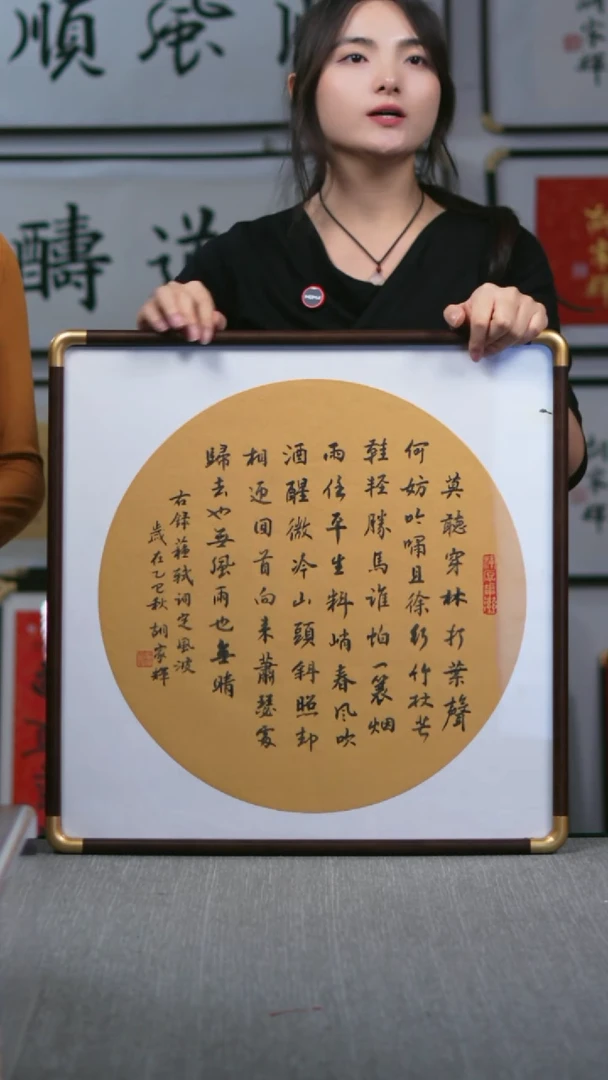 莫聽穿林打葉聲
何妨吟嘯且徐行竹杖芒
鞋輕勝馬誰怕一蓑烟
雨任平生料峭春风吹
酒醒微冷山頭斜照却
相迎回首向来蕭瑟處
歸去也無風雨也無晴
右録蘇軾詞定風波
歲在乙巳秋胡家輝
順風順
道
醻
家輝